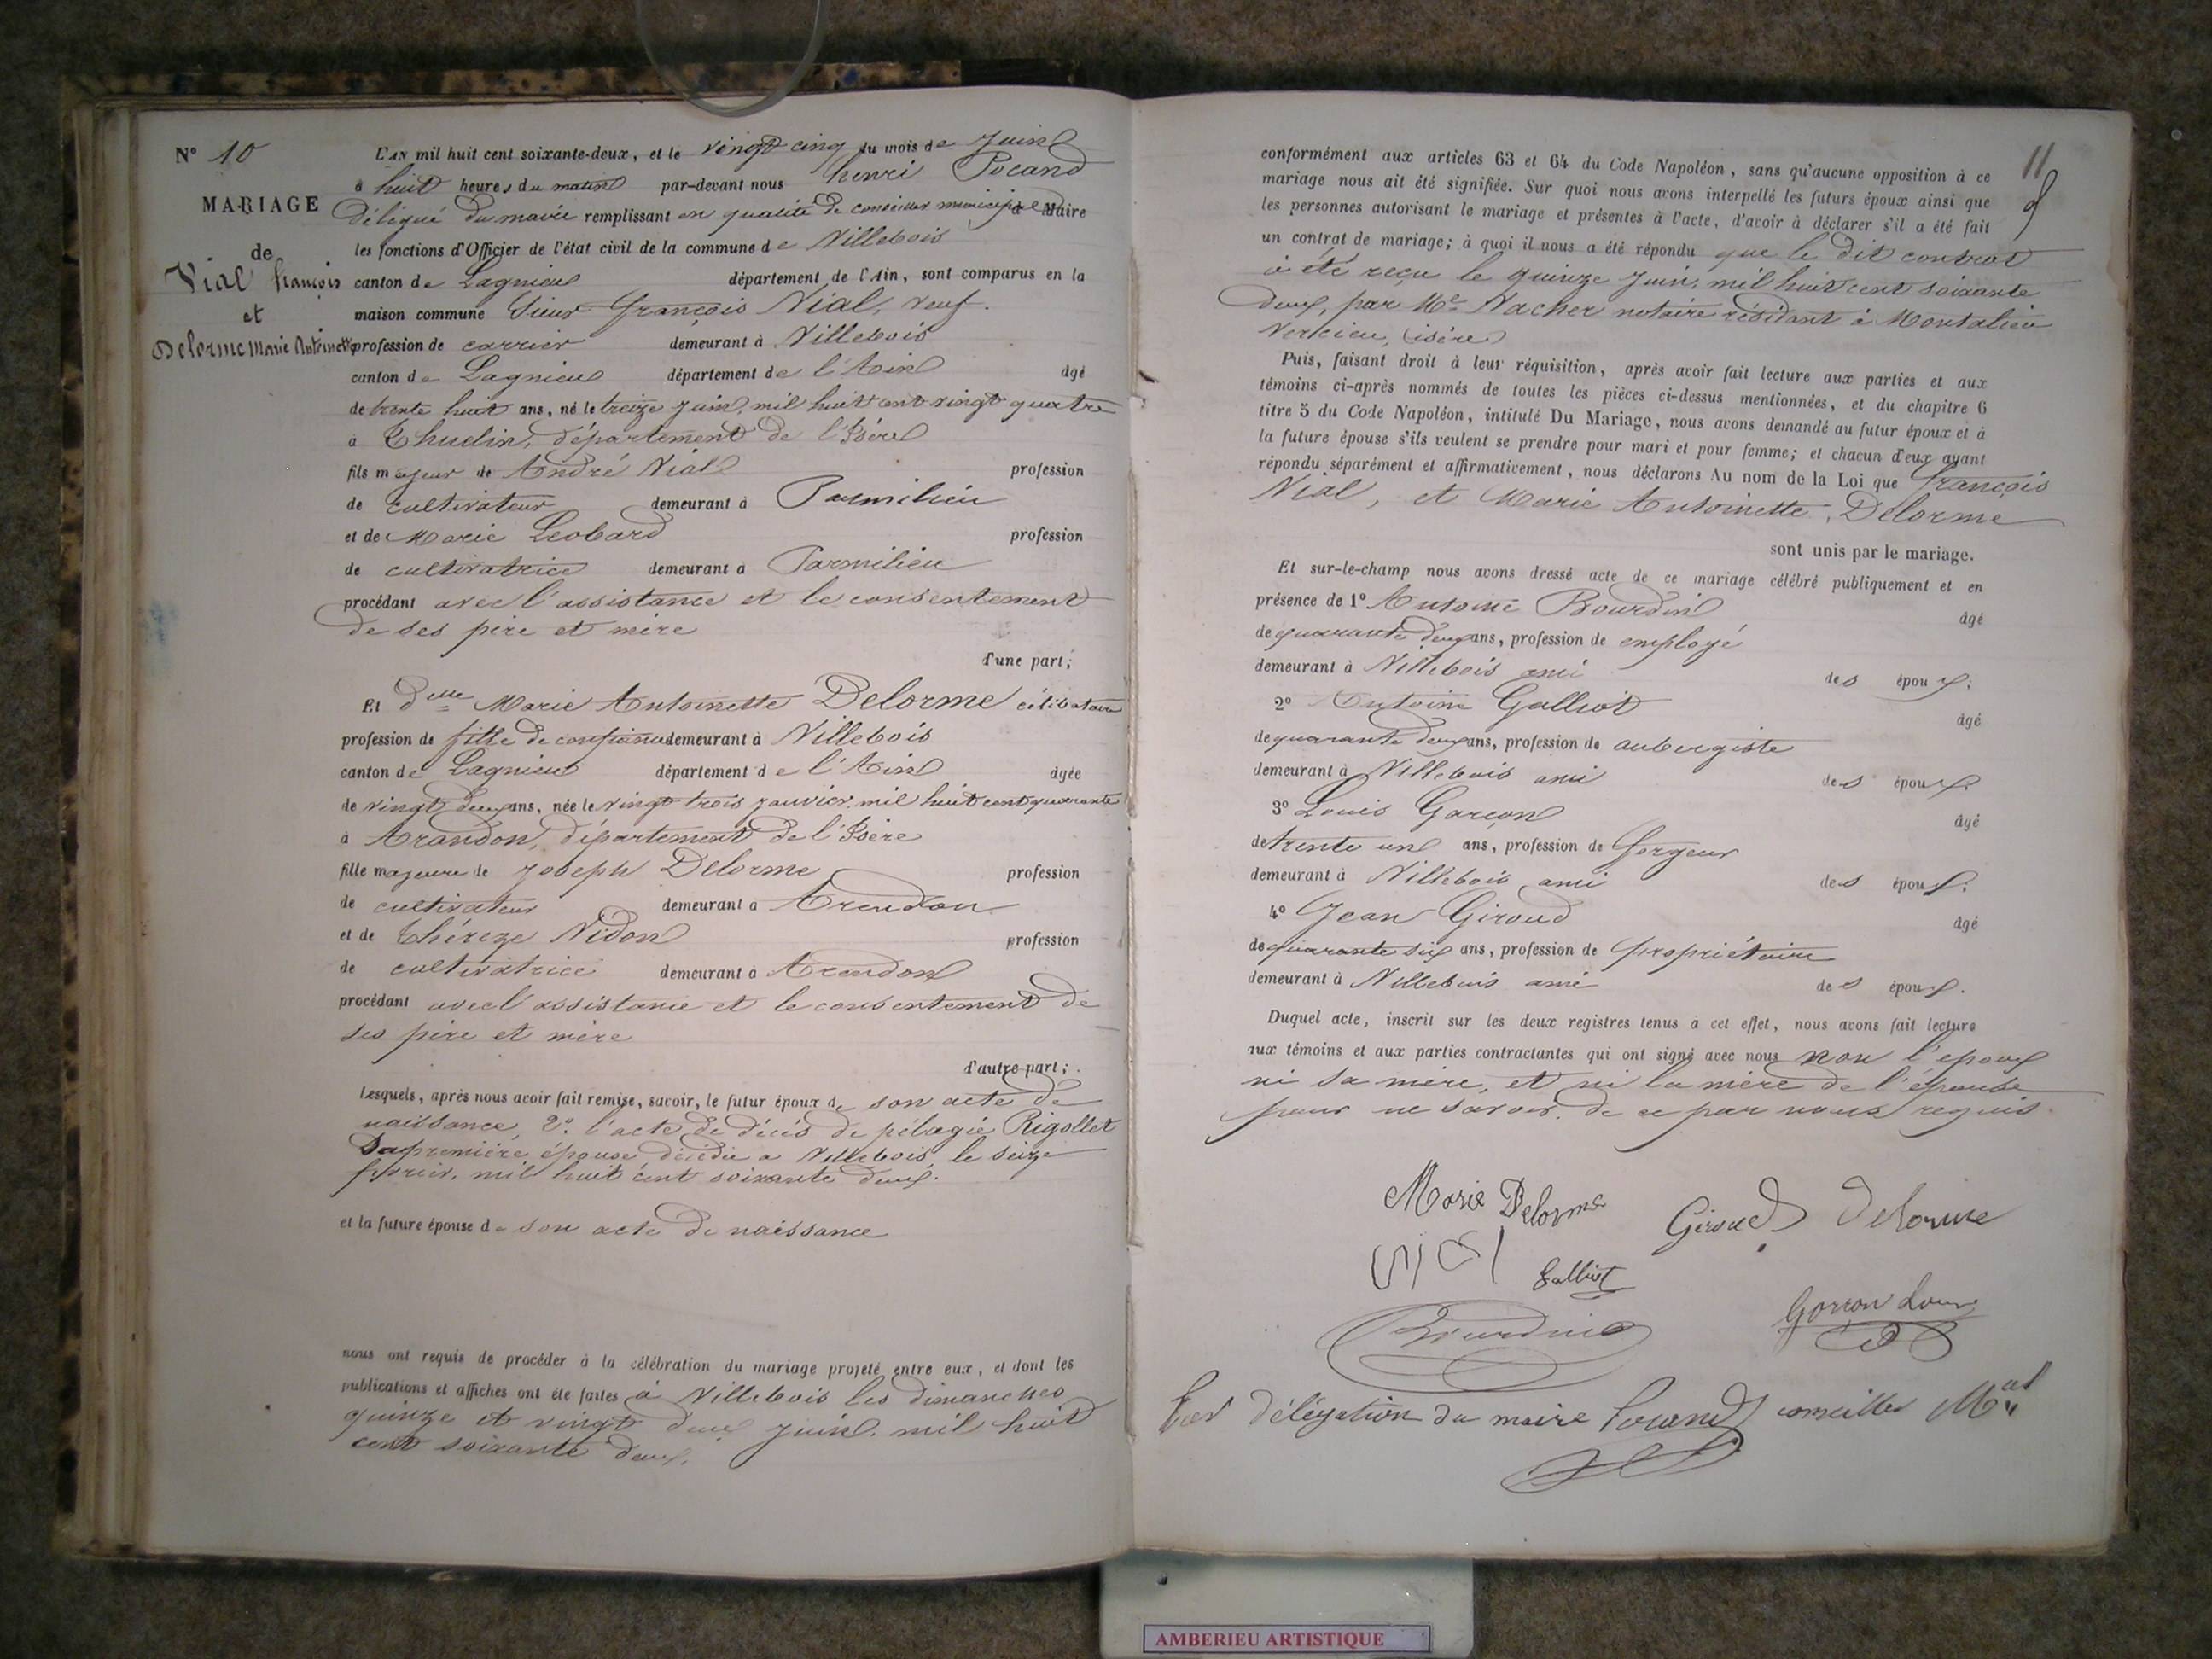 N° 10
MARIAGE
de
Vial françois
et
Delorme Marie Antoinette
L'AN mil huit cent soixante-deux, et le vingt cinq du mois de Juin
à huit heures du matin par-devant nous henri Pocand
délégué du maire remplissant en qualité de conseiller municipal Maire
les fonctions d'Officier de l'état civil de la commune de Villebois
canton de Lagnieu département de l'Ain, sont comparus en la
maison commune Sieur François Vial, veuf.
profession de carrier demeurant à Villebois
canton de Lagnieu département de l'Ain âgé
de trente huit ans, né le treize juin, mil huit cent vingt quatre
à Thuelin, département de l'Isère
fils majeur de André Vial profession
de cultivateur demeurant à Parmilieu
et de Marie Leobard profession
de cultivatrice demeurant à Parmilieu
procédant avec l'assistance et le consentement
de ses père et mère
d'une part;
Et delle Marie Antoinette Delorme célibataire
profession de fille de confiance demeurant à Villebois
canton de Lagnieu département de l'Ain âgée
de vingt deux ans, née le vingt trois janvier, mil huit cent quarante
à Arandon, département de l'Isère
fille majeure de Joseph Delorme profession
de cultivateur demeurant à Arendon
et de Théreze Nidon profession
de cultivatrice demeurant à Arendon
procédant avec l'assistance et le consentement de
ses père et mère
d'autre part;
Lesquels, après nous avoir fait remise, savoir, le futur époux de son acte de
naissance, 2° l'acte de décès de pélagie Rigollet
Sa première épouse décédée a Villebois, le seize
février, mil huit cent soixante deux.
et la future épouse de son acte de naissance
nous ont requis de procéder à la célébration du mariage projeté entre eux, et dont les
publications et affiches ont été faites à Villebois les dimanches
quinze et vingt deux juin, mil huit
cent soixante deux.
11
conformément aux articles 63 et 64 du Code Napoléon, sans qu'aucune opposition à ce
mariage nous ait été signifiée. Sur quoi nous avons interpellé les futurs époux ainsi que
les personnes autorisant le mariage et présentes à l'acte, d'avoir à déclarer s'il a été fait
un contrat de mariage; à quoi il nous a été répondu que le dit contrat
à été reçu le quinze Juin, mil huit cent soixante
deux, par Me Vacher notaire résidant à Montalieu
Vercieu, (isère)
Puis, faisant droit à leur réquisition, après avoir fait lecture aux parties et aux
témoins ci-après nommés de toutes les pièces ci-dessus mentionnées, et du chapitre 6
titre 5 du Code Napoléon, intitulé Du Mariage, nous avons demandé au futur époux et à
la future épouse s'ils veulent se prendre pour mari et pour femme; et chacun d'eux ayant
répondu séparément et affirmativement, nous déclarons Au nom de la Loi que François
Vial, et Marie Antoinette, Delorme
sont unis par le mariage.
Et sur-le-champ nous avons dressé acte de ce mariage célébré publiquement et en
présence de 1° Antoine Bourdin âgé
de quarante deux ans, profession de employé
demeurant à Villebois ami des époux.
2° Antoine Galliot âgé
de quarante deux ans, profession de aubergiste
demeurant à Villebois ami des époux.
3° Louis Garçon âgé
de trente un ans, profession de forgeur
demeurant à Villebois ami des époux.
4° Jean Giroud âgé
de quarante six ans, profession de propriétaire
demeurant à Villebois ami des époux.
Duquel acte, inscrit sur les deux registres tenus à cet effet, nous avons fait lecture
aux témoins et aux parties contractantes qui ont signé avec nous non l'epoux
ni sa mère, et ni la mère de l'épouse
pour ne savoir, de ce par nous requis.
Marie Delorme
Giroud Delorme
Galliot
Bourdin
Gorron Louis
Par délégation du maire Pocand conseiller Mal
AMBERIEU ARTISTIQUE